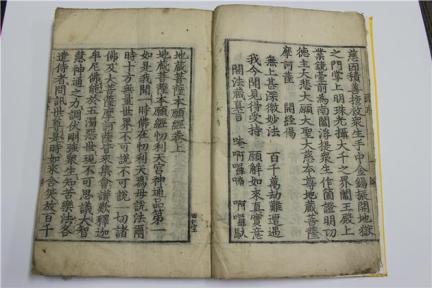 慈因積善誓救衆生手中金錫振開地獄
之門掌上明珠光攝大千之界閻王殿上
業鏡臺前爲南閻浮提衆生作箇證明功
德主大悲大願大聖大慈本尊地藏菩薩
摩訶薩 開經偈
無上甚深微妙法 百千萬劫難遭遇
我今聞見得受持 願解如來眞實意
開法藏眞言 唵 阿囉喃 阿囉馱
地藏菩薩本願經卷上
地藏菩薩本願經忉利天宮神通品第一
如是我聞一時佛在忉利天爲母說法爾
時十方無量世界不可說不可說一切諸
佛及大菩薩摩訶薩皆來集會讃歎釋迦
牟尼佛能於五濁惡世現不可思議大智
慧神通之力調伏剛强衆生知苦樂法各
遣侍者問訊世尊是時如來含笑放百千